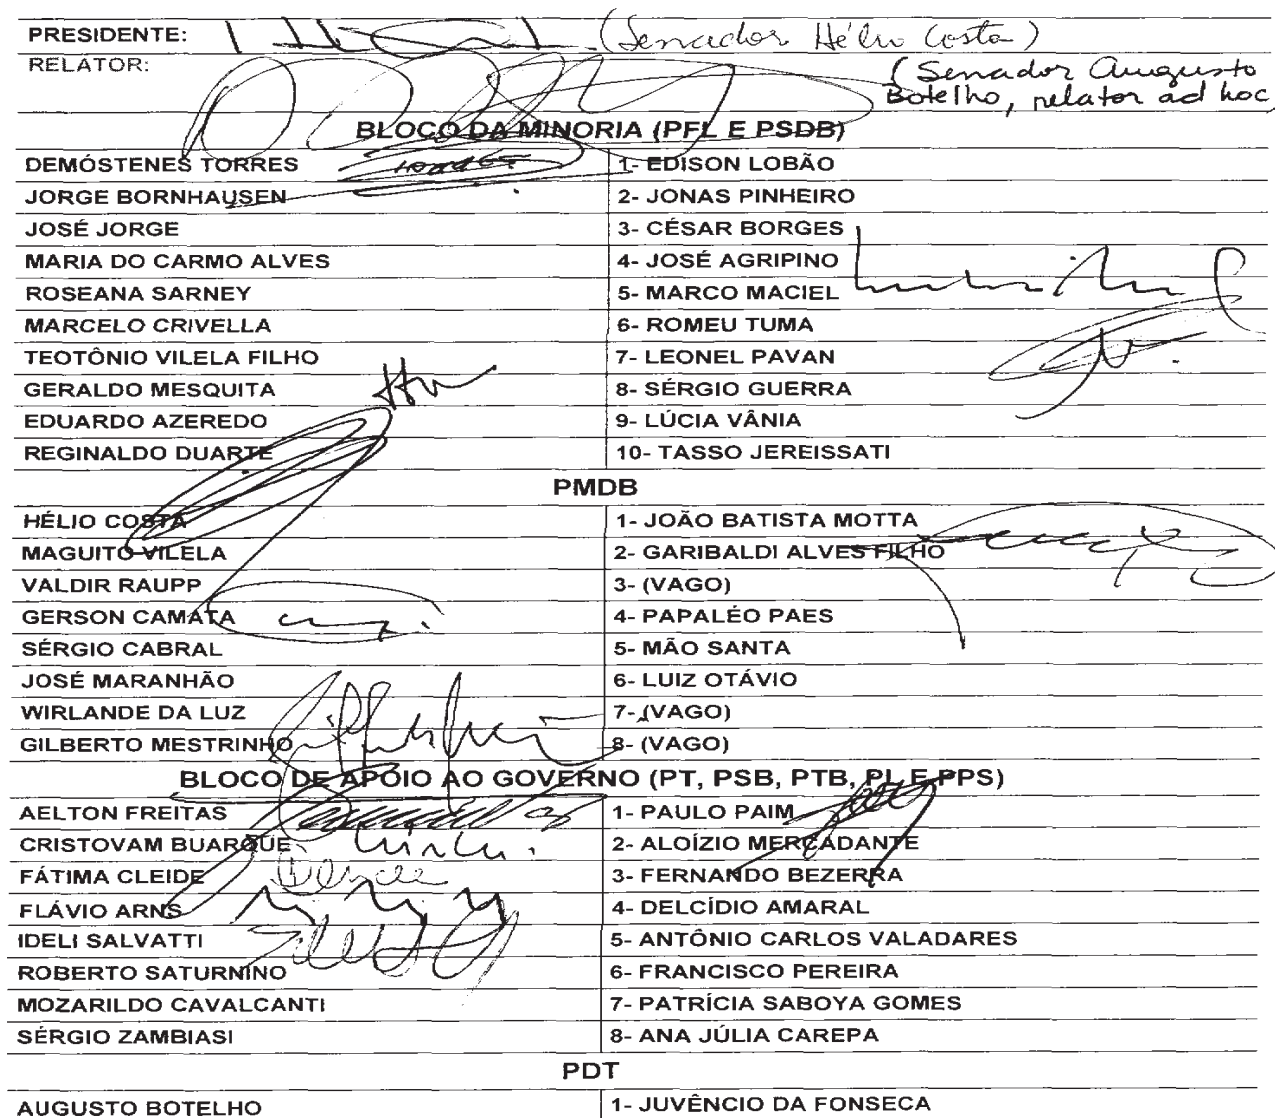 PRESIDENTE: (Senador Hélio Costa)
RELATOR: (Senador Augusto
Botelho, relator ad hoc
BLOCO DA MINORIA (PFL E PSDB)
DEMÓSTENES TORRES 1- EDISON LOBÃO
JORGE BORNHAUSEN 2- JONAS PINHEIRO
JOSÉ JORGE 3- CÉSAR BORGES
MARIA DO CARMO ALVES 4- JOSÉ AGRIPINO
ROSEANA SARNEY 5- MARCO MACIEL
MARCELO CRIVELLA 6- ROMEU TUMA
TEOTÔNIO VILELA FILHO 7- LEONEL PAVAN
GERALDO MESQUITA 8- SÉRGIO GUERRA
EDUARDO AZEREDO 9- LÚCIA VÂNIA
REGINALDO DUARTE 10- TASSO JEREISSATI
PMDB
HÉLIO COSTA 1- JOÃO BATISTA MOTTA
MAGUITO VILELA 2- GARIBALDI ALVES FILHO
VALDIR RAUPP 3- (VAGO)
GERSON CAMATA 4- PAPALÉO PAES
SÉRGIO CABRAL 5- MÃO SANTA
JOSÉ MARANHÃO 6- LUIZ OTÁVIO
WIRLANDE DA LUZ 7- (VAGO)
GILBERTO MESTRINHO 8- (VAGO)
BLOCO DE APOIO AO GOVERNO (PT, PSB, PTB, PL E PPS)
AELTON FREITAS 1- PAULO PAIM
CRISTOVAM BUARQUE 2- ALOÍZIO MERCADANTE
FÁTIMA CLEIDE 3- FERNANDO BEZERRA
FLÁVIO ARNS 4- DELCÍDIO AMARAL
IDELI SALVATTI 5- ANTÔNIO CARLOS VALADARES
ROBERTO SATURNINO 6- FRANCISCO PEREIRA
MOZARILDO CAVALCANTI 7- PATRÍCIA SABOYA GOMES
SÉRGIO ZAMBIASI 8- ANA JÚLIA CAREPA
PDT
AUGUSTO BOTELHO 1- JUVÊNCIO DA FONSECA